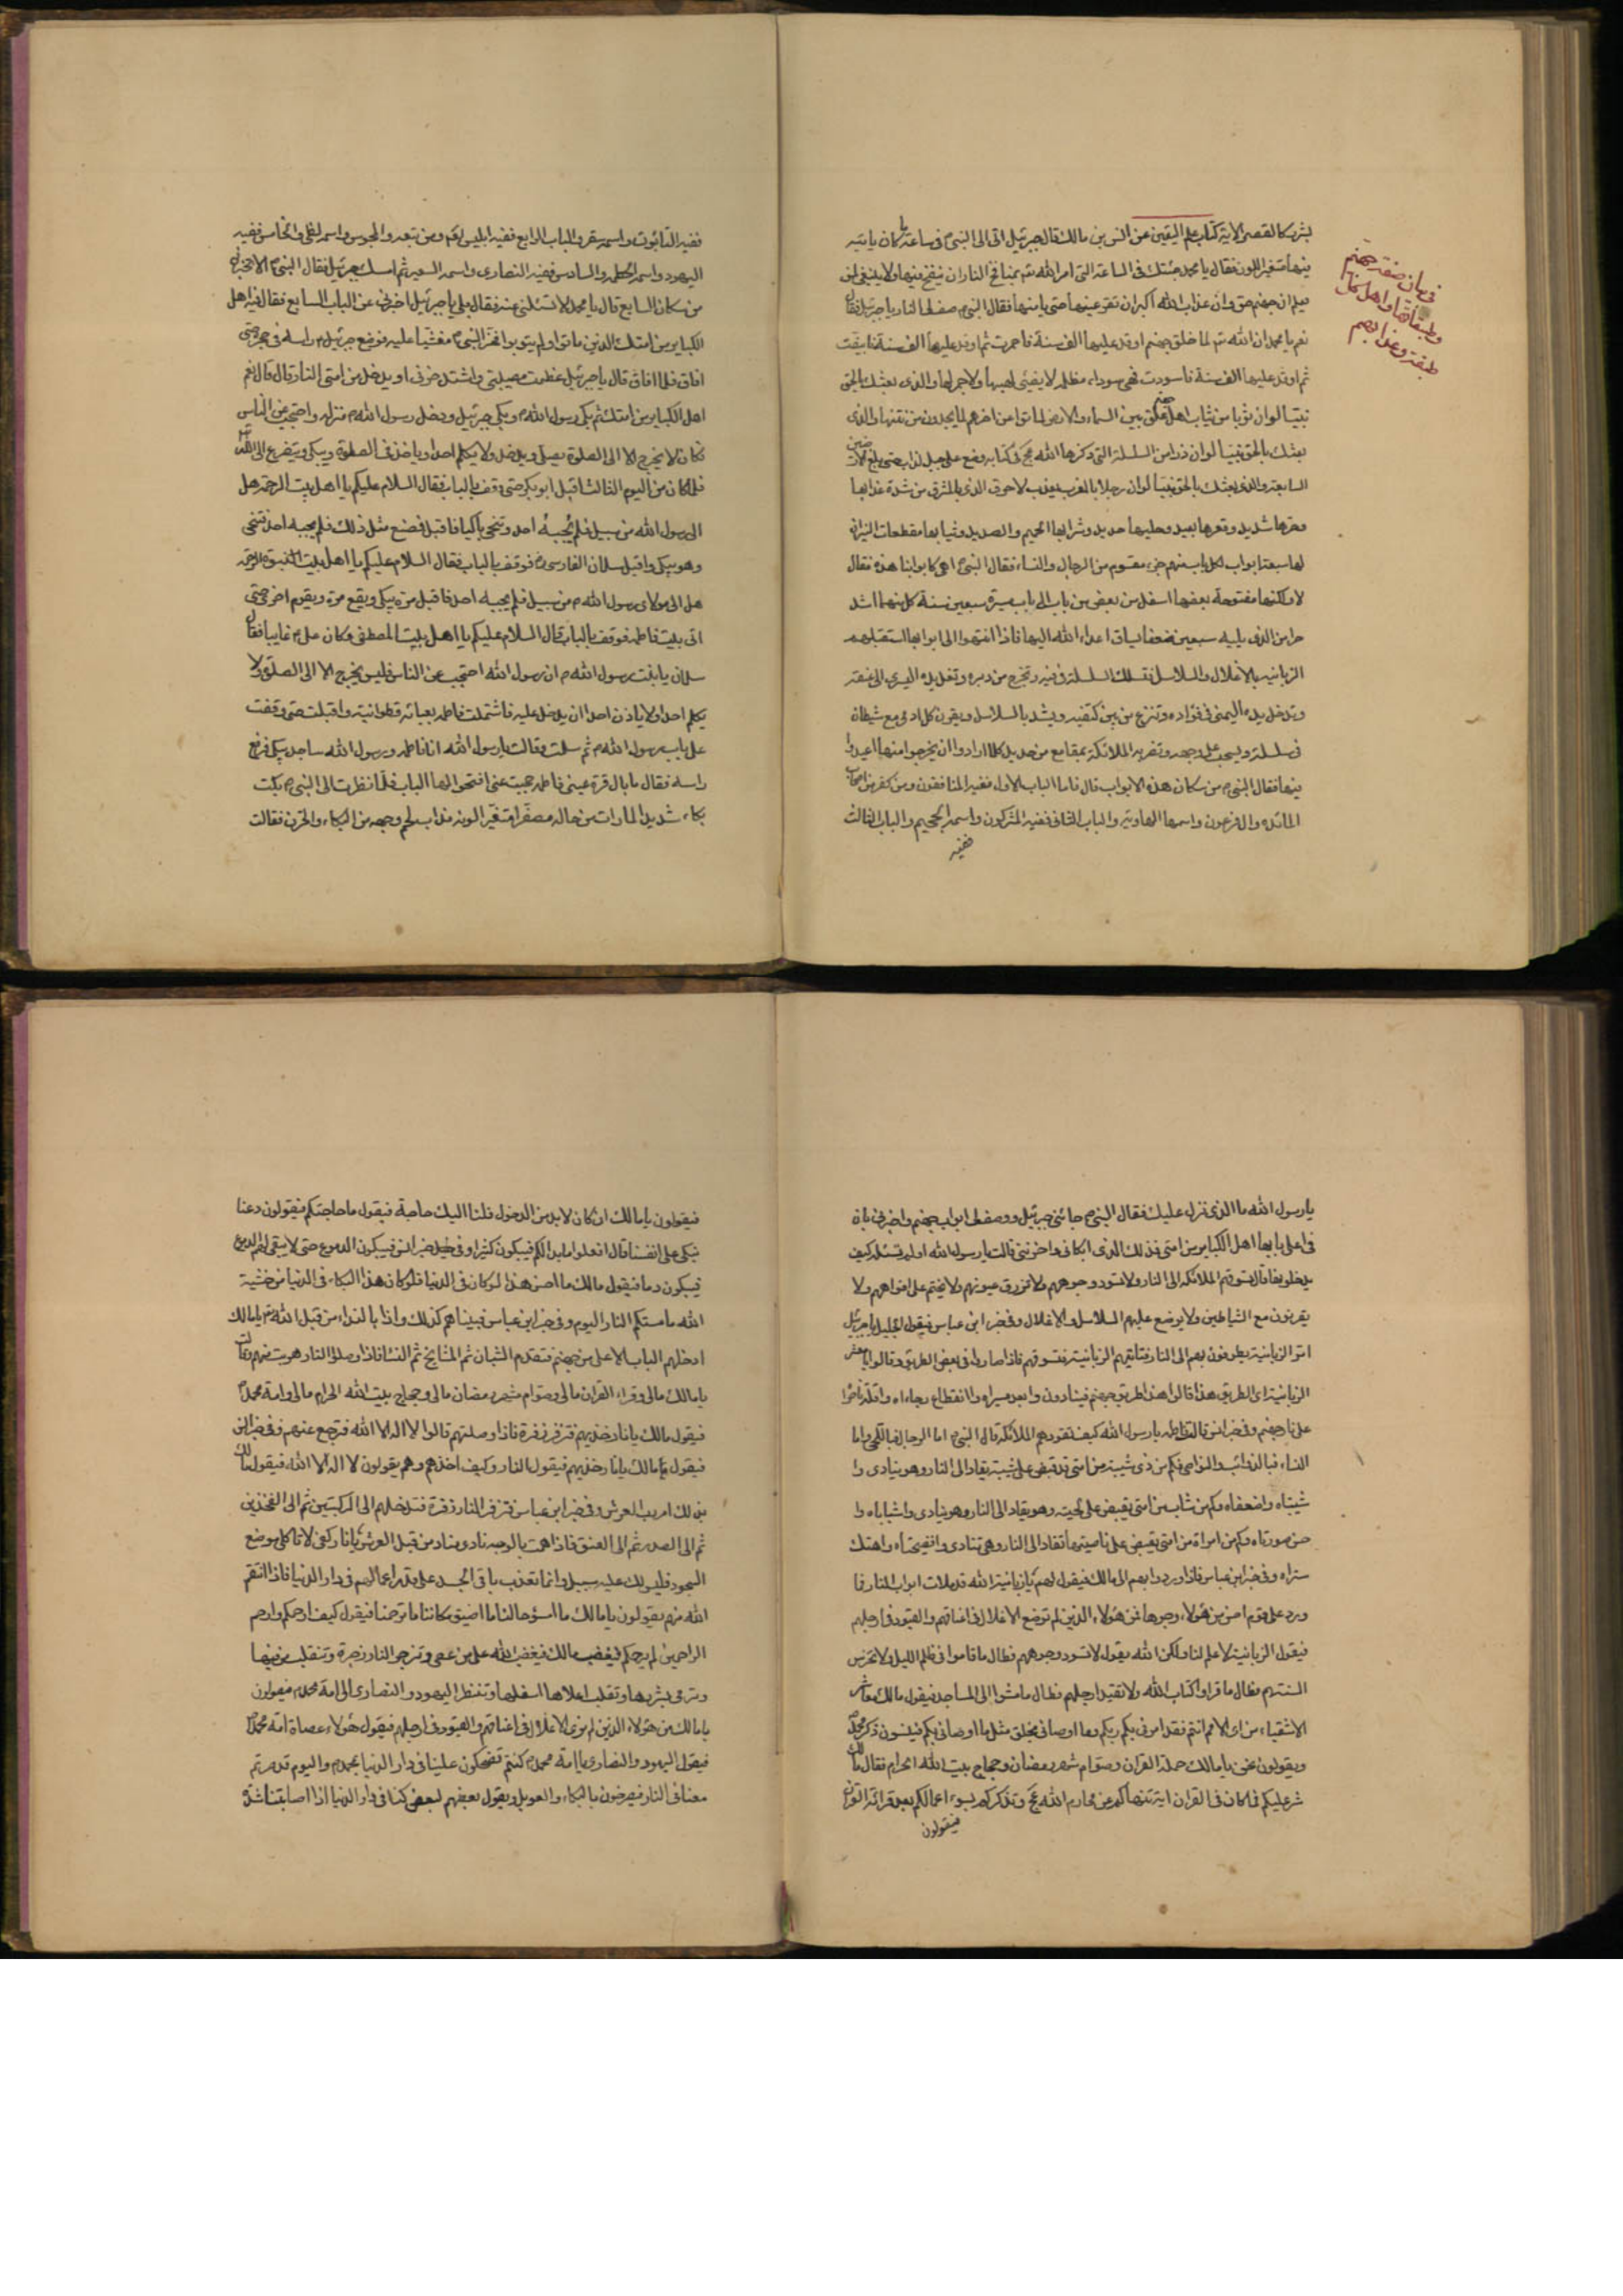 بشرر كالقصر الاية كتاب علم اليقين عن انس بن مالك قال جبرئيل اتى الى النبي ص في ساعة ما كان ياتيه
فيها متغير اللون فقال يا محمد جئتك في الساعة التي امر الله تعـ بمنافخ النار ان ينفخ فيها ولا ينبغي لمن
يعلم ان جهنم حق وان عذاب الله اكبر ان تقر عينها حتى يامنها فقال النبي ص صف لي النار يا جبرئيل فقال
نعم يا محمد ان الله تعـ لما خلق جهنم اوقد عليها الف سنة فاحمرت ثم اوقد عليها الف سنة فابيضت
ثم اوقد عليها الف سنة فاسودت فهي سوداء مظلمة لا يضيئ لهبها ولا جمرها والذي بعثك بالحق
نبيا لو ان ثوبا من ثياب اهل جهنم علق بين السماء والارض لماتوا عن اخرهم لما يجدون من نتنها والذي
بعثك بالحق نبيا لو ان ذراعا من السلسلة التي ذكرها الله عج في كتابه وضع على جبل لذاب حتى يبلغ الارضين
السابعة والذي بعثك بالحق نبيا لو ان رجلا بالمغرب يعذب لاحرق الذي بالمشرق من شدة عذابها
وحرها شديد وقعرها بعيد وحليها حديد وشرابها الحميم والصديد وثيابها مقطعات النيران
لها سبعة ابواب لكل باب منهم جزء مقسوم من الرجال والنساء فقال النبي ص اهي كابوابنا هذه فقال
لا ولكنها مفتوحة بعضها اسفل من بعض من باب الى باب مسيرة سبعين سنة كل منها اشد
حرا من الذي يليه سبعين ضعفا يساق اعداء الله اليها فاذا انتهوا الى ابوابها استقبلهم
الزبانية بالاغلال والسلاسل فتسلك السلسلة في فيه وتخرج من دبره وتغل يده اليسرى الى عنقه
وتدخل يده اليمنى في فؤاده وتنزع من بين كتفيه ويشد بالسلاسل ويقرن كل ادمي مع شيطان
في سلسلة ويسحب على وجهه وتضربه الملائكة بمقامع من حديد كلما ارادوا ان يخرجوا منها اعيدوا
فيها فقال النبي ص من سكان هذه الابواب قال فاما الباب الاول ففيه المنافقون ومن كفر من اصحاب
المائدة وال فرعون واسمها الهاوية والباب الثاني ففيه المشركون واسمه الجحيم والباب الثالث
ففيه
في بيان صفة جهنم
وطبقاتها واهل كل
طبقة وعذابهم
ففيه الصابئون واسمه سقر والباب الرابع ففيه ابليس لعنه ومن تبعه والمجوس واسمه لظى والخامس ففيه
اليهود واسمه الحطمة والسادس ففيه النصارى واسمه السعير ثم امسك جبرئيل فقال النبي ص الا تخبرني
من سكان السابع قال يا محمد لا تسئلني عنه فقال بلى يا جبرئيل اخبرني عن الباب السابع فقال فيه اهل
الكباير من امتك الذين ماتوا ولم يتوبوا فخر النبي ص مغشيا عليه فوضع جبرئيل راسه في حجره حتى
افاق فلما افاق قال يا جبرئيل عظمت مصيبتي واشتد حزني او يدخل من امتي النار قال نعم
اهل الكباير من امتك ثم بكى رسول الله ص وبكى جبرئيل ودخل رسول الله ص منزله واحتجب عن الناس
فكان لا يخرج الا الى الصلوة يصلي ويدخل ولا يكلم احدا وياخذ في الصلوة ويبكي ويتضرع الى الله تعـ
فلما كان من اليوم الثالث اقبل ابو بكر حتى وقف بالباب فقال السلام عليكم يا اهل بيت الرحمة هل
الى رسول الله من سبيل فلم يجبه احد وتنحى باكيا فاقبل فصنع مثل ذلك فلم يجبه احد فتنحى
وهو يبكي واقبل سلمان الفارسي رض فوقف بالباب فقال السلام عليكم يا اهل بيت النبوة والرحمة
هل الى مولاي رسول الله ص من سبيل فلم يجبه احد فاقبل مرة يبكي ويقع مرة ويقوم اخرى حتى
اتى بيت فاطمة فوقف بالباب فقال السلام عليكم يا اهل بيت المصطفى وكان علي ع غايبا فقال
سلمان يا بنت رسول الله ص ان رسول الله احتجب عن الناس فليس يخرج الا الى الصلوة ولا
يكلم احدا ولا ياذن احدا ان يدخل عليه فاشتملت فاطمة بعبائة قطوانية واقبلت حتى وقفت
على باب رسول الله ص ثم سلمت وقالت يا رسول الله انا فاطمة ورسول الله ساجد يبكي فرفع
راسه فقال ما بال قرة عيني فاطمة حجبت عني افتحوا لها الباب فلما نظرت الى النبي ص بكت
بكاء شديدا لما رات من حاله مصفرا متغير اللون مذاب لحم وجهه من البكاء والحزن فقالت
يا رسول الله ما الذي نزل عليك فقال النبي ص جائني جبرئيل ووصف لي ابواب جهنم واخبرني بان
في اعلى بابها اهل الكباير من امتي فذلك الذي ابكاني واحزنني قالت يا رسول الله اولم تسئله كيف
يدخلونها قال تسوقهم الملائكة الى النار ولا تسود وجوههم ولا تزرق عيونهم ولا يختم على افواههم ولا
يقرنون مع الشياطين ولا يوضع عليهم السلاسل والاغلال وفي خبر ابن عباس فيقول الجليل يا جبرئيل
الزبانية اي الطريق هذا قالوا هذا طريق جهنم فينادون وا بعد مسيراه وا انقطاع رجاءاه وا قلة
على نار جهنم وفي خبر انس قالت فاطمة يا رسول الله كيف تقودهم الملائكة قال النبي ص اما الرجال فباللحى واما
النساء فبالذوائب والنواصي فكم من ذي شيبة من امتي قد قبض على شيبته يقاد الى النار وهو ينادي وا
شيبتاه وا ضعفاه وكم من شاب من امتي يقبض على لحيته وهو يقاد الى النار وهو ينادي وا شباباه وا
حسن صورتاه وكم من امراة من امتي تقبض على ناصيتها تقاد الى النار وهي تنادي وا فضيحتاه وا هتك
ستراه وفي خبر ابن عباس فاذا وردوا بهم الى مالك فيقول لهم يا زبانية الله قد ملات ابواب النار فما
ورد علي قوم احسن من هؤلاء وجوها فمن هؤلاء الذين لم توضع الاغلال في اعناقهم والقيود في ارجلهم
فيقول الزبانية لا علم لنا ولكن الله يقول لا تسود وجوههم فطال ما قاموا في ظلم الليل ولا تخرس
السنتهم فطال ما قراوا كتاب الله ولا تقيد ارجلهم فطال ما مشوا الى المساجد فيقول مالك معاشر
الاشقياء من اي الامم انتم
ويقولون نحن يا مالك حملة القران وصوام شهر رمضان وحجاج بيت الله الحرام فقال مالك
عليكم فما كان في القران اية تنهاكم عن محارم الله عج وتذكركم بسوء اعمالكم بعد قرائة القران
فيقولون
فيقولون يا مالك ان كان لا بد من الدخول فلنا اليك حاجة فيقول ما حاجتكم فيقولون دعنا
نبكي على انفسنا قال افعلوا ما بدا لكم فيبكون كثيرا وفي خبر انس فيبكون الدموع حتى لا يبقى لهم الدموع
فيبكون دما فيقول مالك ما احسن هذا لو كان في الدنيا فلو كان هذا البكاء في الدنيا من خشية
الله ما مستكم النار اليوم وفي خبر ابن عباس فبينا هم كذلك واذا بالنداء من قبل الله تعـ يا مالك
ادخلهم الباب الاعلى من جهنم فتقدم الشبان ثم المشايخ ثم النساء فاذا وصلوا النار هربت منهم وقالت
يا مالك مالي وقراء القران مالي وصوام شهر رمضان مالي وحجاج بيت الله الحرام مالي وامة محمد ص
فيقول مالك يا نار خذيهم فتزفر زفرة فاذا وصلتهم قالوا لا اله الا الله فترجع عنهم وفي خبر انس
فيقول مالك يا نار خذيهم فيقول النار وكيف اخذهم وهم يقولون لا اله الا الله فيقول مالك
بذلك امر رب العرش وفي خبر ابن عباس تزفر النار زفرة فتدخلهم الى الركبتين ثم الى الفخذين
ثم الى الصدر ثم الى العنق فاذا همت بالوجه نادى مناد من قبل العرش يا نار كفي لا تاكلي موضع
السجود فليس لك عليه سبيل وانما تعذب باقي الجسد على قدر اعمالهم في دار الدنيا فاذا انتقم
الله منهم يقولون يا مالك ما اسوء حالنا ما اضيق مكاننا ما ترحمنا فيقول كيف ارحمكم وارحم
الراحمين لم يرحمكم فيغضب مالك فيغضب الله على من عصى وتزجر النار زجرة وتنقلب من فيها
وترمى بشررها وتقلب اعلاها اسفلها وتنظر اليهود والنصارى الى امة محمد ص فيقولون
يا مالك من هؤلاء الذين لم نرى الاغلال في اعناقهم والقيود في ارجلهم فيقول هؤلاء عصاة امة محمد ص
فيقول اليهود والنصارى يا امة محمد ص كنتم تضحكون علينا في دار الدنيا بمحمد ص واليوم قد صرتم
معنا في النار فيصرخون بالبكاء والعويل ويقول بعضهم لبعض كنا في دار الدنيا اذا اصابتنا شدة